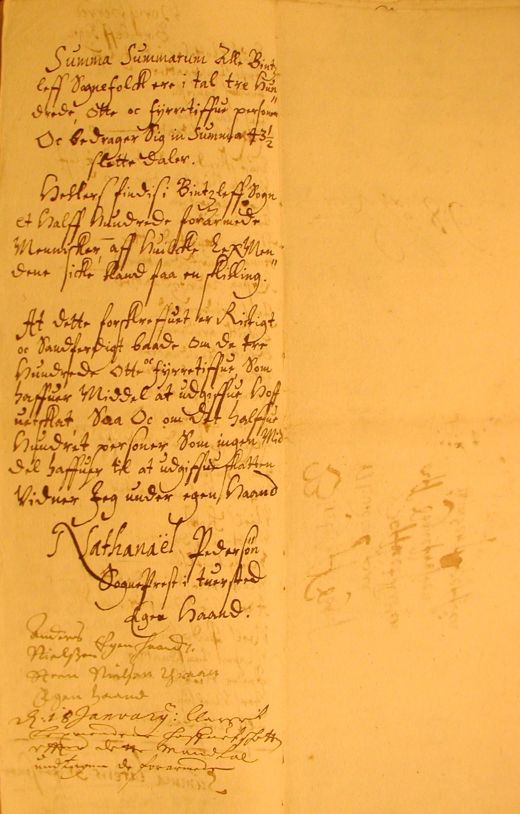 Summa Summarum Alle Bintz-
leff Sognefolck ere i tal tre Hun-
drede, Otte oc fyrretiffue personer
Oc bedrager Sig in Summa 43½
slette daler.
Hellers findis i Bintzleff Sogn
et Halff Hundrede forarmede
Mennisker, aff Huilcke Lex Men
dene icke kand faa en skilling.
At dette forskreffuet er Rictigt
oc Sandferdigt baade om de tre
Hundrede Otte oc fyrretiffue Som
haffuer Middel at udgiffue Hoff
uetskat, Saa Oc om det halffue
Hundret personer Som ingen Mid
del haffuer til at udgiffue skatten
Vidner Jeg under egen Haand
Nathanaël Pedersøn
Sogneprest i Tuersted
Egen Haand.
Anders
Nielsen Egen haand.
Steen Nielsøn
Egen haand
d. 18 January:
effter dette Mandtal
undtagen de forarmede